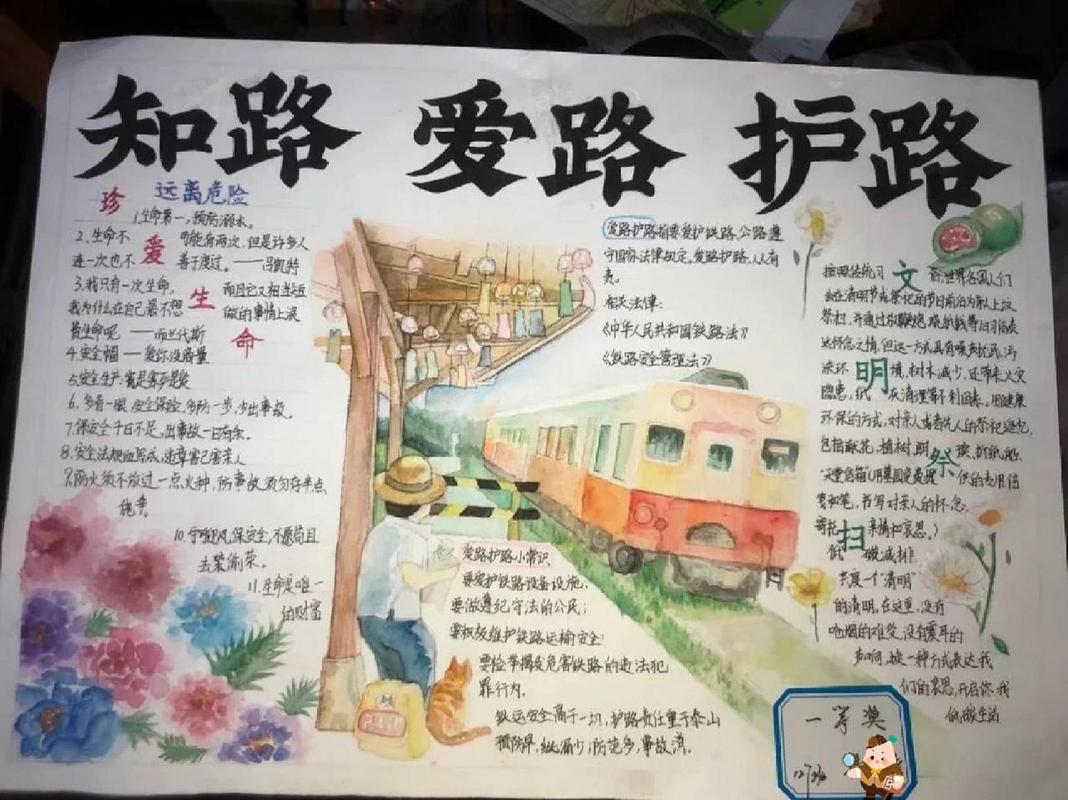 知路 爱路 护路
远离危险
珍爱生命
1.生命第一,预防溺水。
2.生命不可能有两次,但是许多人
连一次也不善于度过。——吕凯特
3.我只有一次生命,而且它又相当短
我为什么在自己最不想做的事情上浪
费生命呢 ——布兰代斯
4.安全帽——爱你没商量
6.多看一眼,安全保险,多防一步,少出事故。
7.保安全千日不足,出事故一日有余。
8.安全法规血写成,违章害己害亲人
9.防火须不放过一点火种,防事故须勿存半点
侥幸。
10.宁咽迎风保安全,不愿苟且
去装偷荣。
11.生命是唯一
的财富
爱路护路指要爱护铁路、公路遵
守国家法律规定。爱路护路,人人有
责。
相关法律:
《中华人民共和国铁路法》
《铁路安全管理法》
爱路护路小常识
要爱护铁路设备设施,
要做遵纪守法的公民;
要积极维护铁路运输安全;
要检举揭发危害铁路的违法犯
罪行为.
铁运安全高于一切,护路责任重于泰山
预防早,纰漏少,防范多,事故消.
文明祭扫
按照传统习俗,世界各国人们
会在清明节或祭祀的节日前后为家人上坟
祭扫,并通过放鞭炮,烧纸钱等旧习俗表
达怀念之情,但这一方式具有噪声扰民,污
染环境,树木减少,还带来火灾
隐患,纸灰清理等不利因素。用健康
环保的方式,对亲人或者先人的祭祀追忆,
包括献花,植树,
天堂信箱
笺和笔,书写对亲人的怀念.
寄托亲情和哀思。)
低碳减排
共度一个"清明"
的清明,在这里,没有
呛烟的难受,没有震耳的
声响,换一种方式表达我
们的哀思,开启你我
低碳生活
一等奖